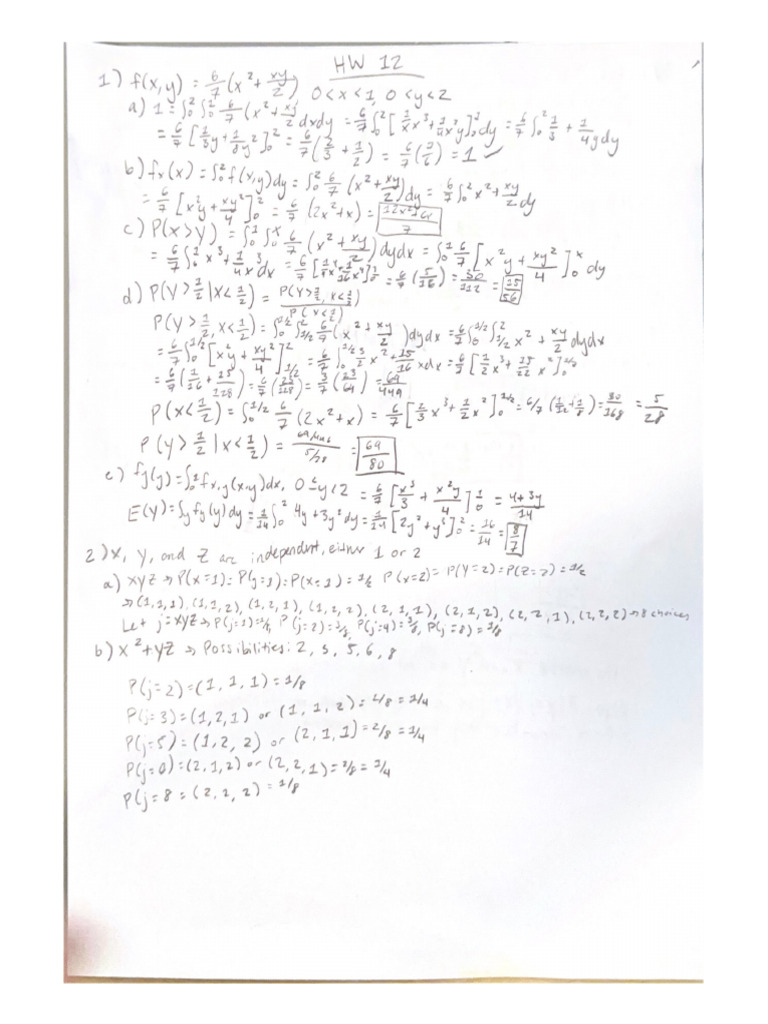 HW 12
1) f(x,y) = 6/7 (x² + xy/2) 0<x<1, 0<y<2
a) 1 = ∫₀² ∫₀² 6/7 (x² + xy/2 dxdy = 6/7 ∫₀² [1/3 x³ + 1/4 x²y]₀¹ dy = 6/7 ∫₀² 1/3 + 1/4 y dy
= 6/7 [1/3 y + 1/8 y²]₀² = 6/7 (2/3 + 1/2) = 6/7 (7/6) = 1 ✓
b) fx(x) = ∫₀² f(x,y) dy = ∫₀² 6/7 (x² + xy/2) dy = 6/7 ∫₀² x² + xy/2 dy
= 6/7 [x²y + xy²/4]₀² = 6/7 (2x² + x) = 12x² + 6x / 7
c) P(X>Y) = ∫₀¹ ∫₀ˣ 6/7 (x² + xy/2) dydx = ∫₀¹ 6/7 [x²y + xy²/4]₀ˣ dy
= 6/7 ∫₀² x³ + 1/4 x³ dx = 6/7 [1/4 x⁴ 1/16 x⁴]₀¹ = 6/7 (5/16) = 30/112 = 15/56
d) P(Y>1/2 | X<1/2) = P(Y>1/2, X<1/2) / P(X<1/2)
P(Y>1/2, X<1/2) = ∫₀^1/2 ∫_1/2^2 6/7 (x² + xy/2) dydx = 6/7 ∫₀^1/2 ∫_1/2^2 x² + xy/2 dydx
= 6/7 ∫₀^1/2 [x²y + xy²/4]_1/2^2 = 6/7 ∫₀^1/2 3/2 x² + 15/16 x dx = 6/7 [1/2 x³ + 15/32 x²]₀^1/2
= 6/7 (1/16 + 15/128) = 6/7 (23/128) = 3/7 (23/64) = 69/448
P(X<1/2) = ∫₀^1/2 6/7 (2x² + x) = 6/7 [2/3 x³ + 1/2 x²]₀^1/2 = 6/7 (1/12 + 1/8) = 30/168 = 5/28
P(Y>1/2 | X<1/2) = 69/448 / 5/28 = 69/80
e) fy(y) = ∫₀¹ fx,y(x,y) dx, 0<y<2 = 6/7 [x³/3 + x²y/4]₀¹ = 4+3y/14
E(Y) = ∫y fy(y) dy = 1/14 ∫₀² 4y + 3y² dy = 1/14 [2y² + y³]₀² = 16/14 = 8/7
2) X, Y, and Z are independent, either 1 or 2
a) XYZ → P(X=1) = P(Y=1) = P(X=1) = 1/2 P(X=2) = P(Y=2) = P(Z=2) = 1/2
→ (1,1,1), (1,1,2), (1,2,1), (1,2,2), (2,1,1), (2,1,2), (2,2,1), (2,2,2) → 8 choices
Let j = XYZ → P(j=1) = 1/8, P(j=2) = 3/8, P(j=4) = 3/8, P(j=8) = 1/8
b) X² + YZ → Possibilities: 2, 3, 5, 6, 8
P(j=2) = (1,1,1) = 1/8
P(j=3) = (1,2,1) or (1,1,2) = 2/8 = 1/4
P(j=5) = (1,2,2) or (2,1,1) = 2/8 = 1/4
P(j=6) = (2,1,2) or (2,2,1) = 2/8 = 1/4
P(j=8 = (2,2,2) = 1/8